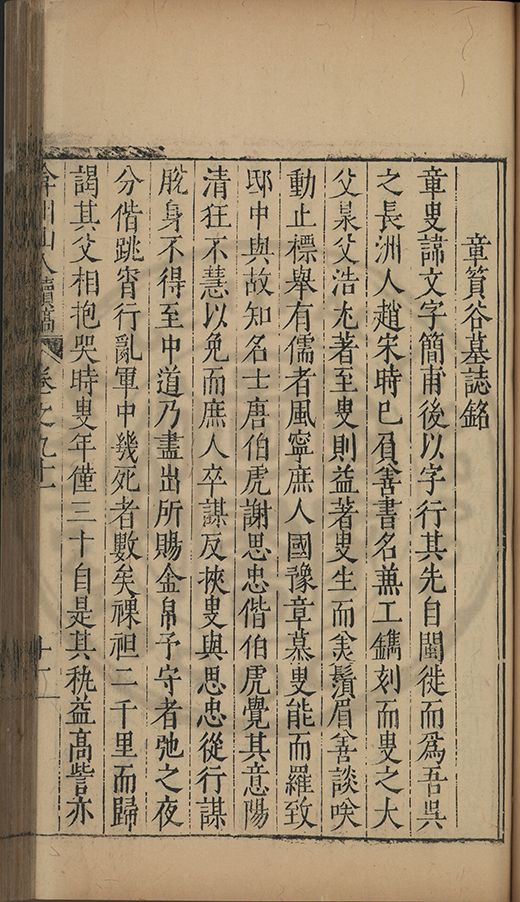 章篔谷墓誌銘
章叟諱文字簡甫後以字行其先自閩徙而爲吾吳
之長洲人趙宋時已負善書名兼工鐫刻而叟之大
父杲父浩尤著至叟則益著叟生而美鬚眉善談咲
動止標舉有儒者風寧庶人國豫章慕叟能而羅致
邸中與故知名士唐伯虎謝思忠偕伯虎覺其意陽
清狂不慧以免而庶人卒謀反挾叟與思忠從行謀
脫身不得至中道乃盡出所賜金帛予守者弛之夜
分偕跳宵行亂軍中幾死者數矣裸袒二千里而歸
謁其父相抱哭時叟年僅三十自是其秇益高訾亦
弇州山人續稿 卷之九十二 十一